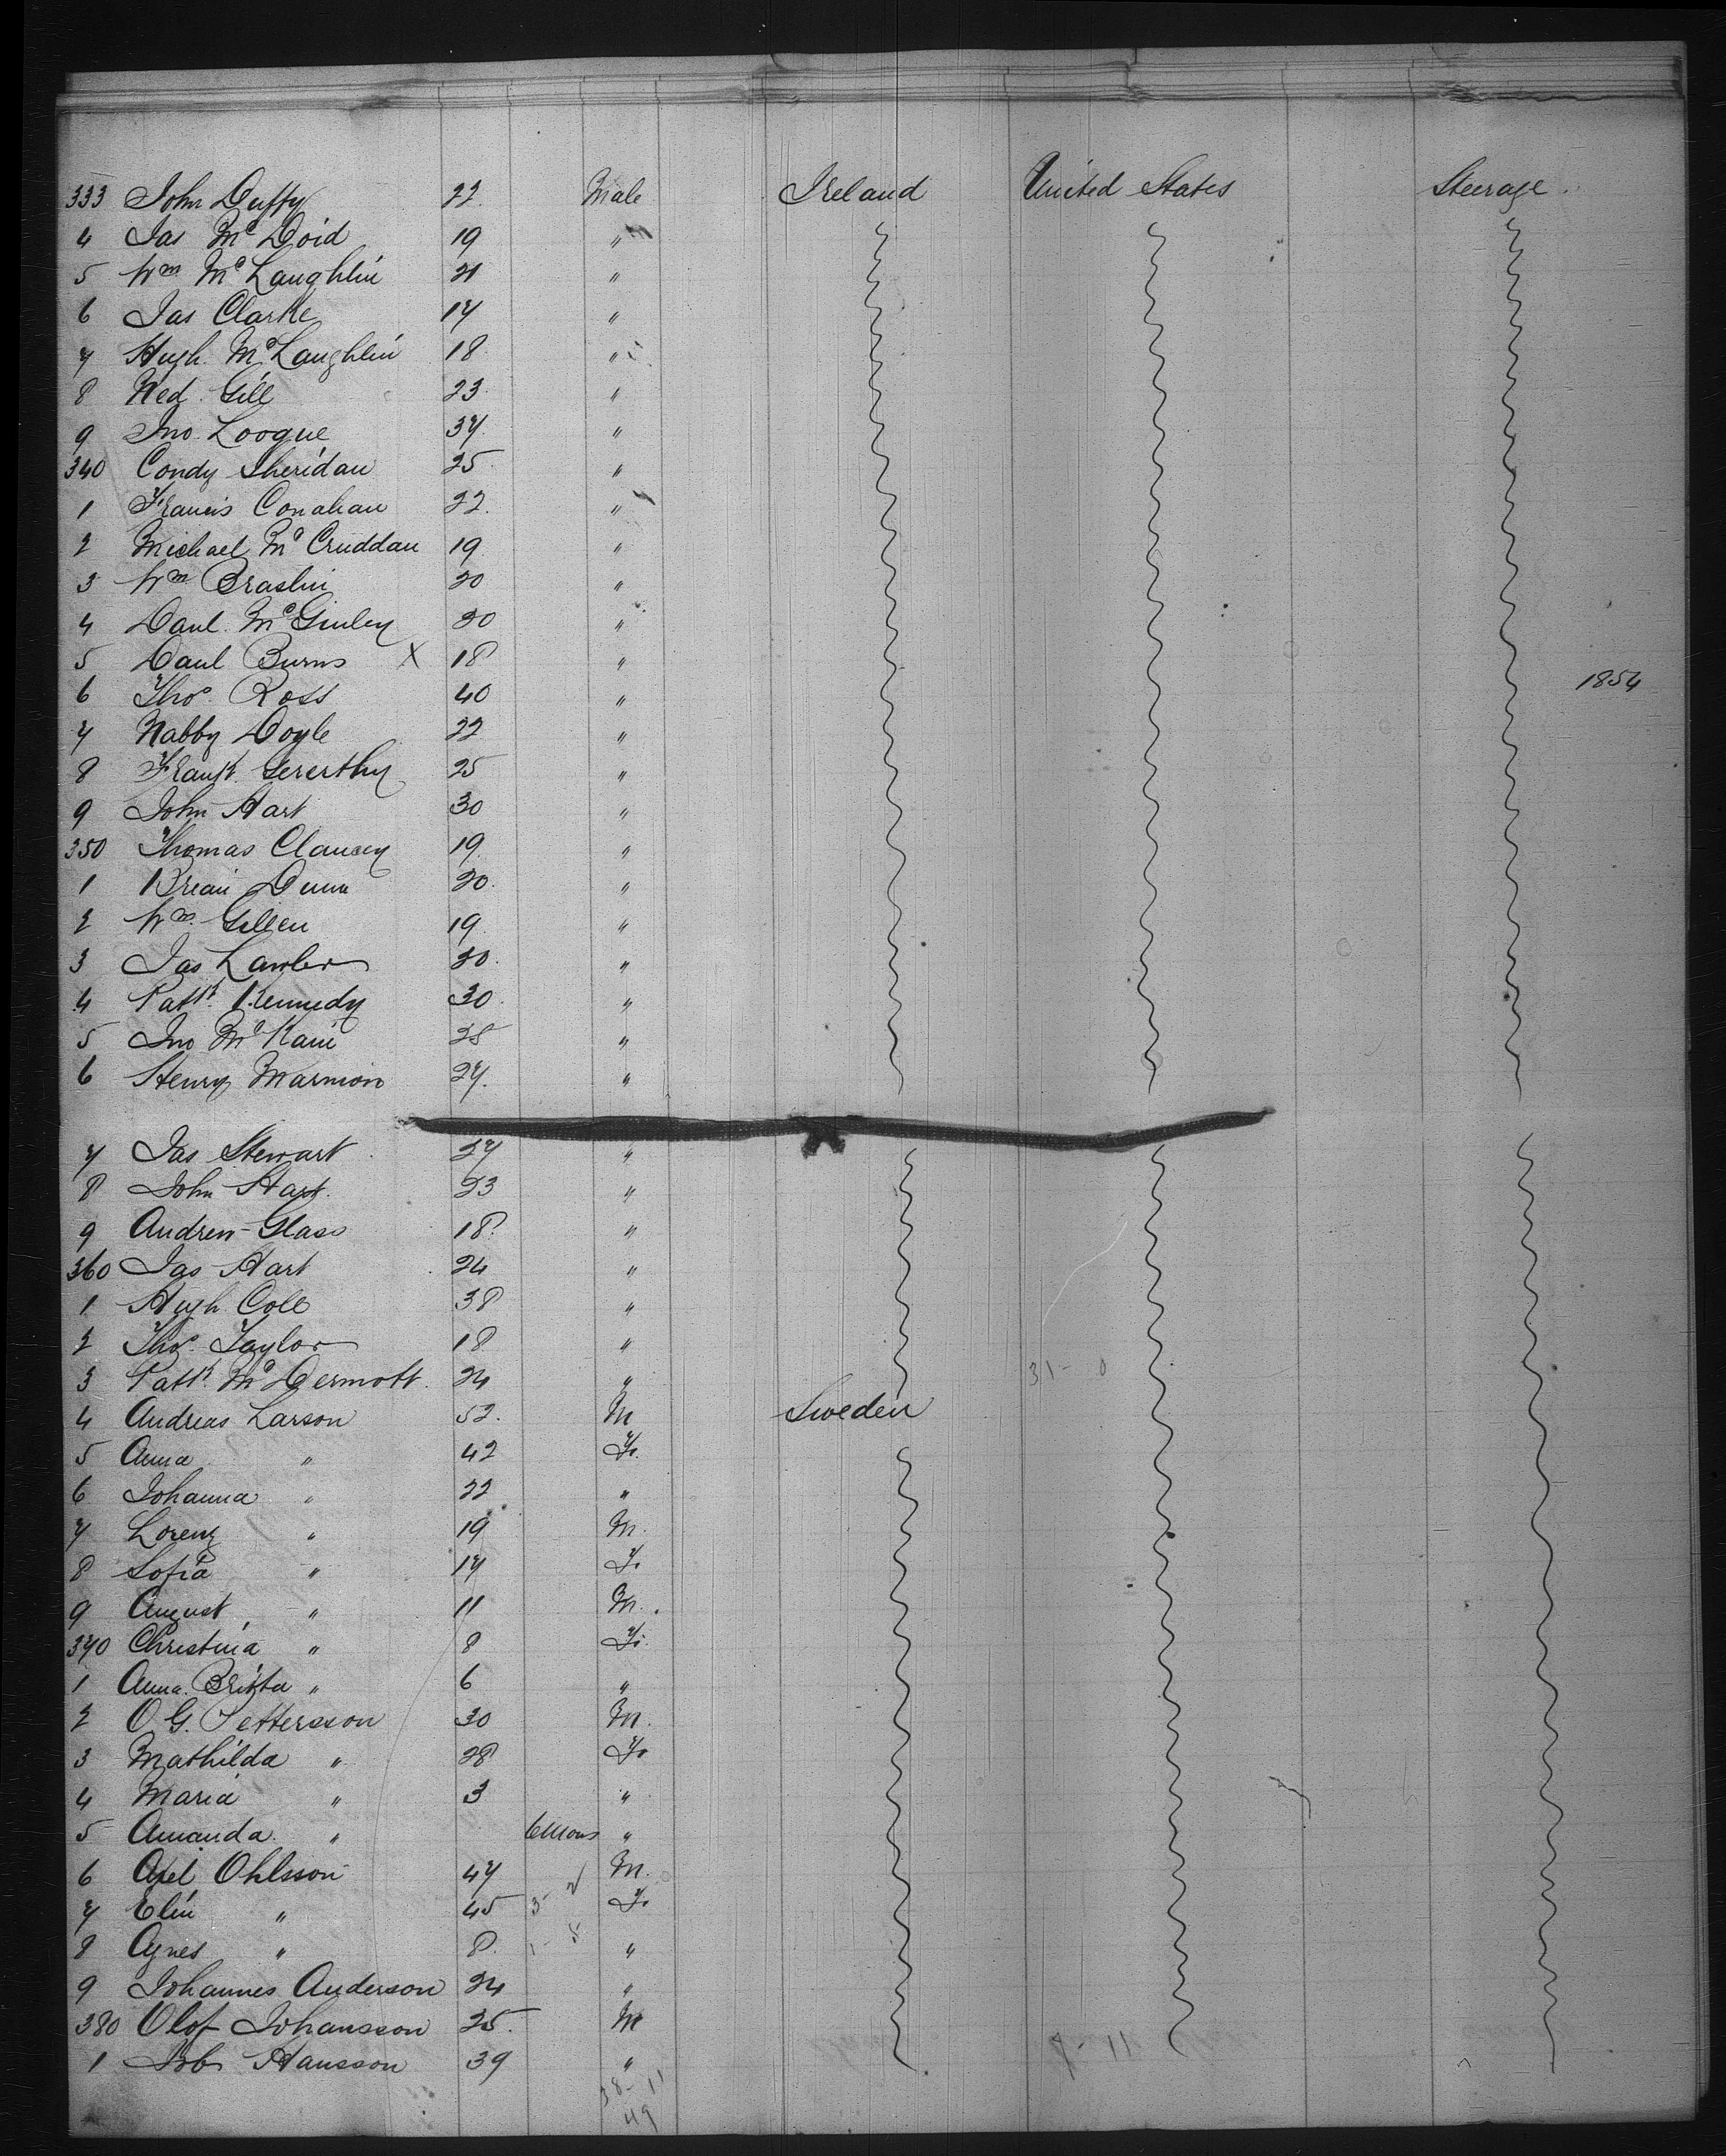 333 John Duffy 22. Male Ireland United States Steerage
4 Jas McDoid 19 "
5 Wm McLaughlin 21 "
6 Jas Clarke 17 "
7 Hugh McLaughlin 18 "
8 Ned Gill 23 "
9 Jno. Loogue 37 "
340 Condy Sheridan 25 "
1 Francis Conahan 22. "
2 Michael McCruddan 19 "
3 Wm Braslin 20 "
4 Danl. McGinley 20 "
5 Danl Burns X 18 "
6 Thos Ross 40 " 1854
7 Nabby Doyle 22 "
8 Frank Gererthy 25 "
9 John Hart 30 "
350 Thomas Clancey 19 "
1 Brian Dunn 20. "
2 Wm. Gillen 19 "
3 Jas Lawler 30. "
4 Patk. Kennedy 30. "
5 Jno McKain 25 "
6 Henry Marmion 27. "
7 Jas Stewart 27 "
8 John Hart. 23 "
9 Andrew Glass 18. "
360 Jas Hart 24 "
1 Hugh Coll 38 "
2 Thos. Taylor 18 "
3 Patk. McDermott. 24 "
4 Andreas Larson 52. M Sweden
5 Anna " 42 F.
6 Johanna " 22 "
7 Lorenz " 19 M.
8 Sofia " 17 F.
9 August " 11 M.
370 Christina " 8 F.
1 Anna Britta " 6 "
2 O. G. Pettersson 30 M.
3 Mathilda " 28 F.
4 Maria " 3 "
5 Amanda " 6 Mons "
6 Axel Ohlsson 47 M.
7 Elin " 45 F.
8 Agnes " 8. "
9 Johannes Anderson 24 "
380 Olof Johansson 25. M
1 Job Hansson 39 "
38 - 11
49